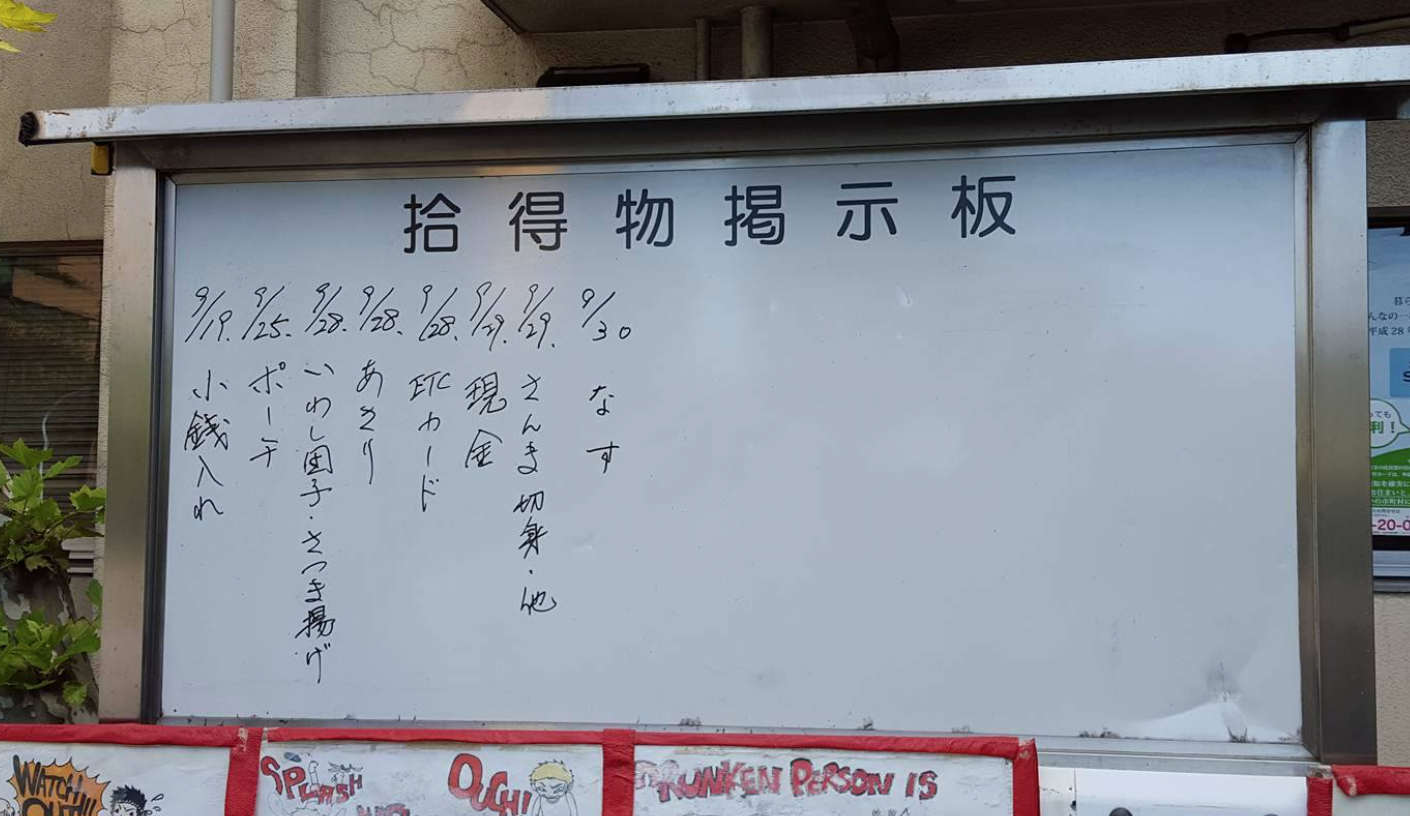 拾得物掲示板
9/19. 小銭入れ
9/25. ポーチ
9/28. いわし団子・さつま揚げ
9/28. あさり
9/28. ETCカード
9/29. 現金
9/29. さんま切身・他
9/30 なす
WATCH OUT!!
SPLASH
OUCH!
DRUNKEN PERSON IS
平成28
利!